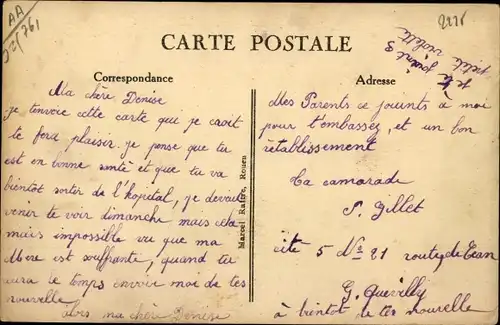 AA
J25/761
2225
CARTE POSTALE
Correspondance
Adresse
Ma chère Denise
je tenvoie cette carte que je croit
te fera plaisir. je pense que tu
est en bonne santé et que tu va
bientôt sortir de l'hopital, je devait
venir te voir dimanche mais cela
mais impossible vu que ma
Mère est souffrante, quand tu
aura le temps envoir moi de tes
nouvelle
ma chère Denise
Marcel Rouen
Mes Parents ce jouints à moi
pour t'embassez, et un bon
rétablissement
ta camarade
P. Gillet
cité 5 No 21 route de Caen
G. Quevilly
à bientôt de tes nouvelle